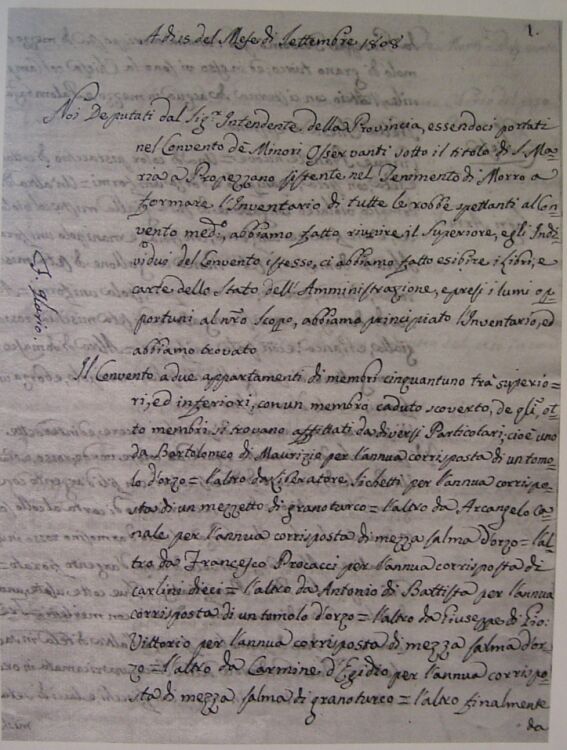 1.
A dì 15 del Mese di Settembre 1808
Noi Deputati dal Sig.r Intendente della Provincia, essendoci portati
nel Convento de Minori Osservanti sotto il titolo di S. Ma=
ria a Propezzano sistente nel Tenimento di Morro a
formare l'Inventario di tutte le robbe spettanti al Con=
vento med.o, abbiamo fatto riunire il Superiore, e gli Indi=
vidui del Convento istesso, ci abbiamo fatto esibire i Libri, e
carte dello Stato dell'Amministrazione, e presi i lumi op=
portuni al nr̃o scopo, abbiamo principiato l'Inventario, ed
abbiamo trovato
Il Convento a due appartamenti di membri cinquantuno trà superio=
ri, ed inferiori, con un membro caduto scoverto, de gli ot=
to membri si trovano affittati da diversi Particolari; cioè uno
da Bortolomeo di Maurizie per l'annua corrisposta di un tomo=
lo d'orzo = l'altro da Liberatore Sichetti per l'annua corrispo=
sta di un mezzetto di granoturco = l'altro da Arcangelo Ca=
nale per l'annua corrisposta di mezza salma d'orzo = l'al=
tro da Francesco Procacci per l'annua corrisposta di
carlini dieci = l'altro da Antonio di Battista per l'annua
corrisposta di un tomolo d'orzo = l'altro da Giuseppe di Gio:
Vittorio per l'annua corrisposta di mezza salma d'or=
zo = l'altro da Carmine d'Egidio per l'annua corrispo=
sta di mezza salma di granoturco = l'altro finalmente
da